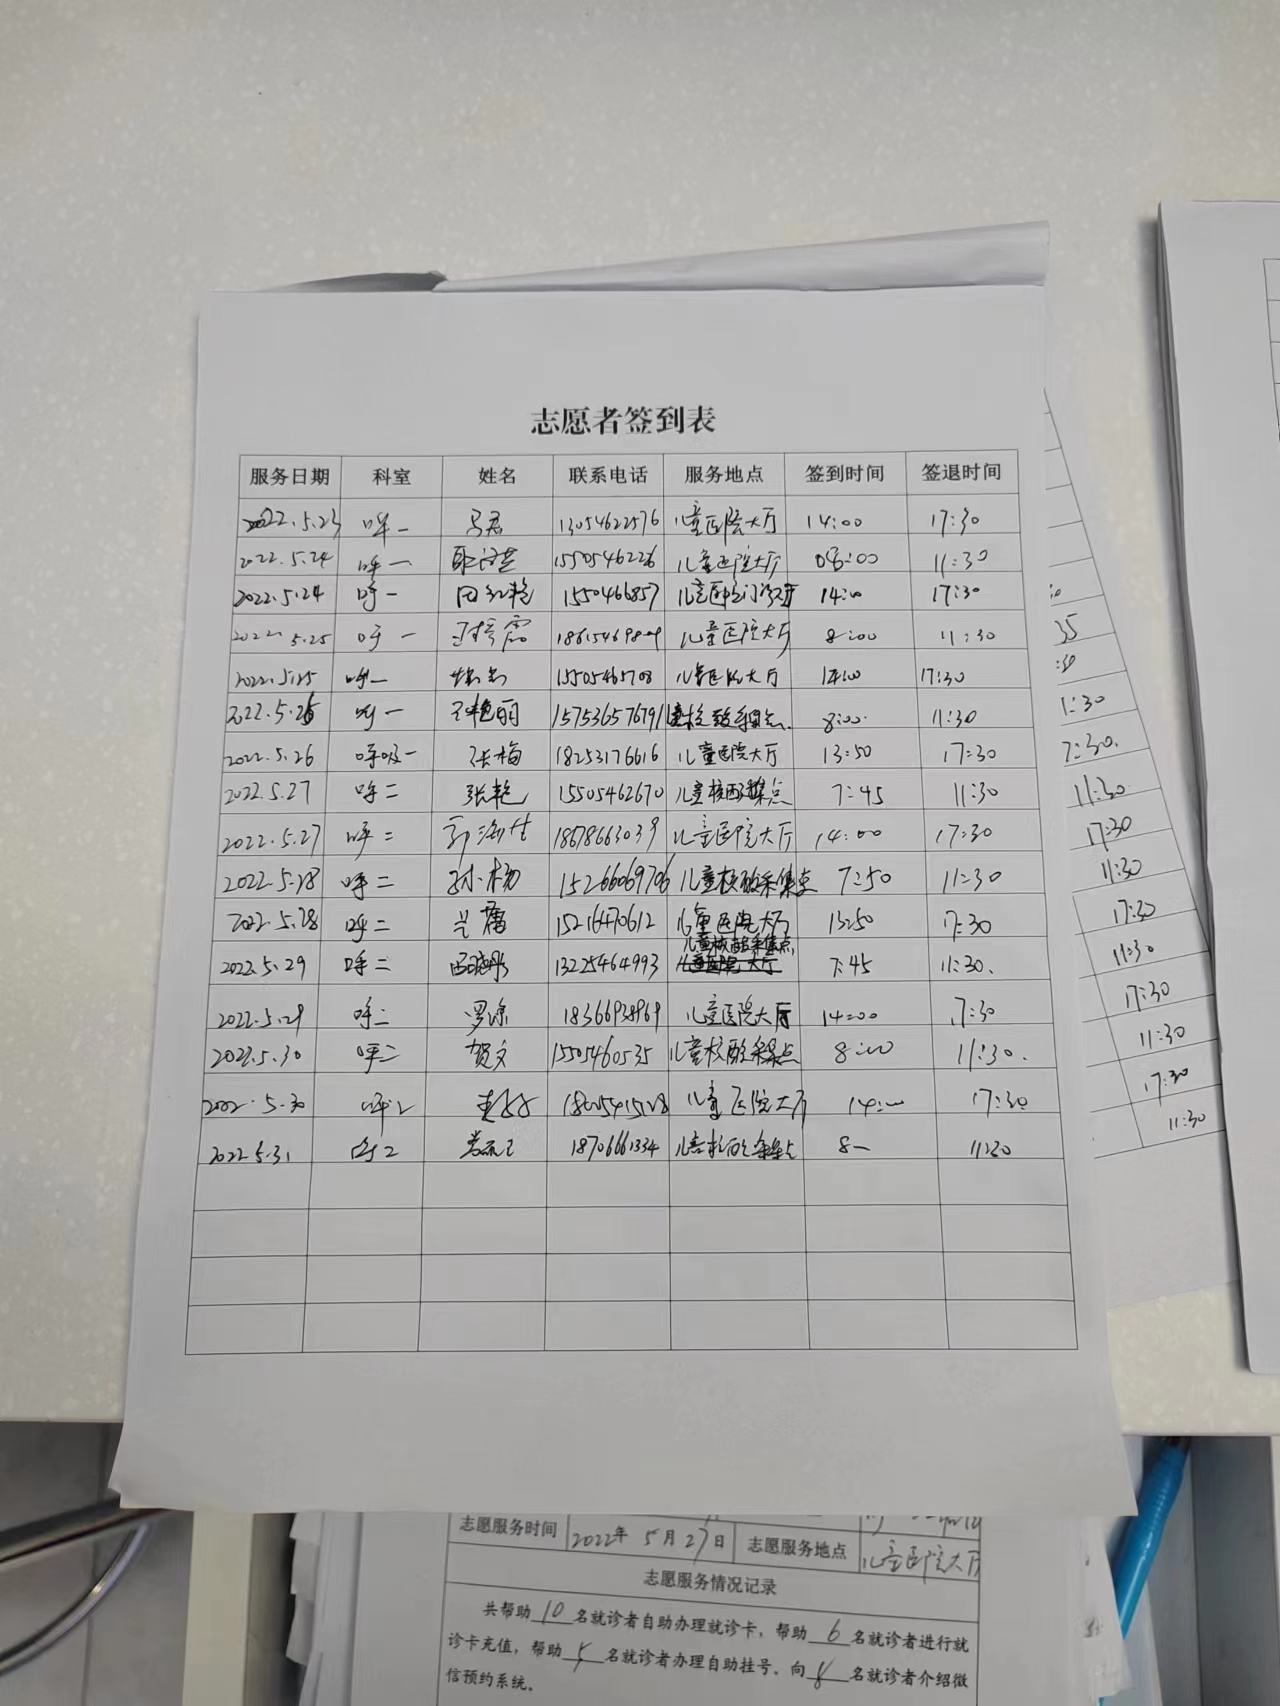 志愿者签到表
服务日期 科室 姓名 联系电话 服务地点 签到时间 签退时间
2022.5.23 呼一 马君 13054622576 儿童医院大厅 14:00 17:30
2022.5.24 呼一 15505462226 儿童医院大厅 08:00 11:30
2022.5.24 呼一 田红艳 1550466857 14:00 17:30
2022.5.25 呼一 儿童医院大厅 8:00 11:30
2022.5.25 呼一 儿童医院大厅 14:00 17:30
2022.5.26 呼一 艳丽 15753657679 8:00 11:30
2022.5.26 呼吸一 张梅 18253176616 儿童医院大厅 13:50 17:30
2022.5.27 呼二 张艳 15505462670 儿童核酸采集点 7:45 11:30
2022.5.27 呼二 儿童医院大厅 14:00 17:30
2022.5.28 呼二 孙杨 15266069706 儿童核酸采集点 7:50 11:30
2022.5.28 呼二 15216470612 儿童医院大厅 13:50 17:30
2022.5.29 呼二 13225464993 儿童核酸采集点 7:45 11:30.
2022.5.29 呼二 18366938969 儿童医院大厅 14:00 17:30
2022.5.30 呼二 贺文 15505460535 儿童核酸采集点 8:00 11:30.
2022.5.30 呼2 儿童医院大厅 14:00 17:30
2022.5.31 呼2 18706661334 8- 11:30
35
1:30
7:30.
11:30
17:30
11:30
17:30
11:30
17:30
11:30
17:30
11:30
志愿服务时间 2022年5月27日 志愿服务地点 儿童医院大厅
志愿服务情况记录
共帮助10名就诊者自助办理就诊卡,帮助6名就诊者进行就
诊卡充值,帮助5名就诊者办理自助挂号,向8名就诊者介绍微
信预约系统。